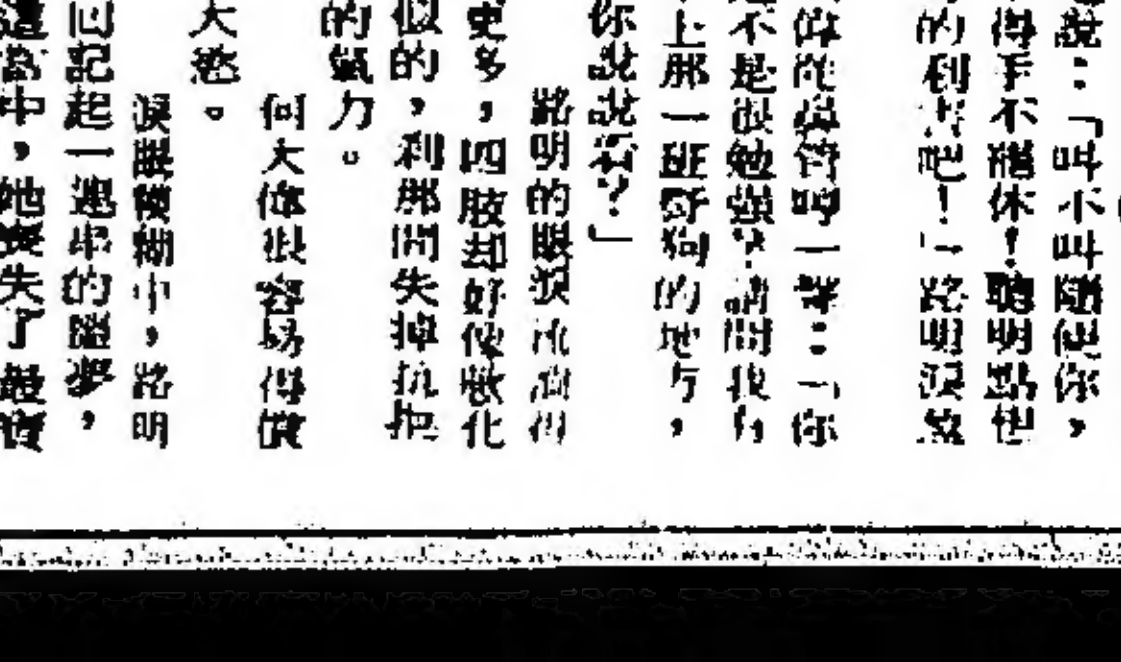 說：「叫不叫隨便你，
得手不罷休！聰明點把
的利害吧！」路明淚
一聲：「你
不是很勉強？請問我有
上那一班野狗的地方，
你說說看？」
路明的眼淚流得
更多，四肢却好像軟化
似的，刹那間失掉抗拒
的氣力。
何大偉很容易得償
大慾。
淚眼模糊中，路明
回記起一連串的噩夢，
當中，她喪失了最寶